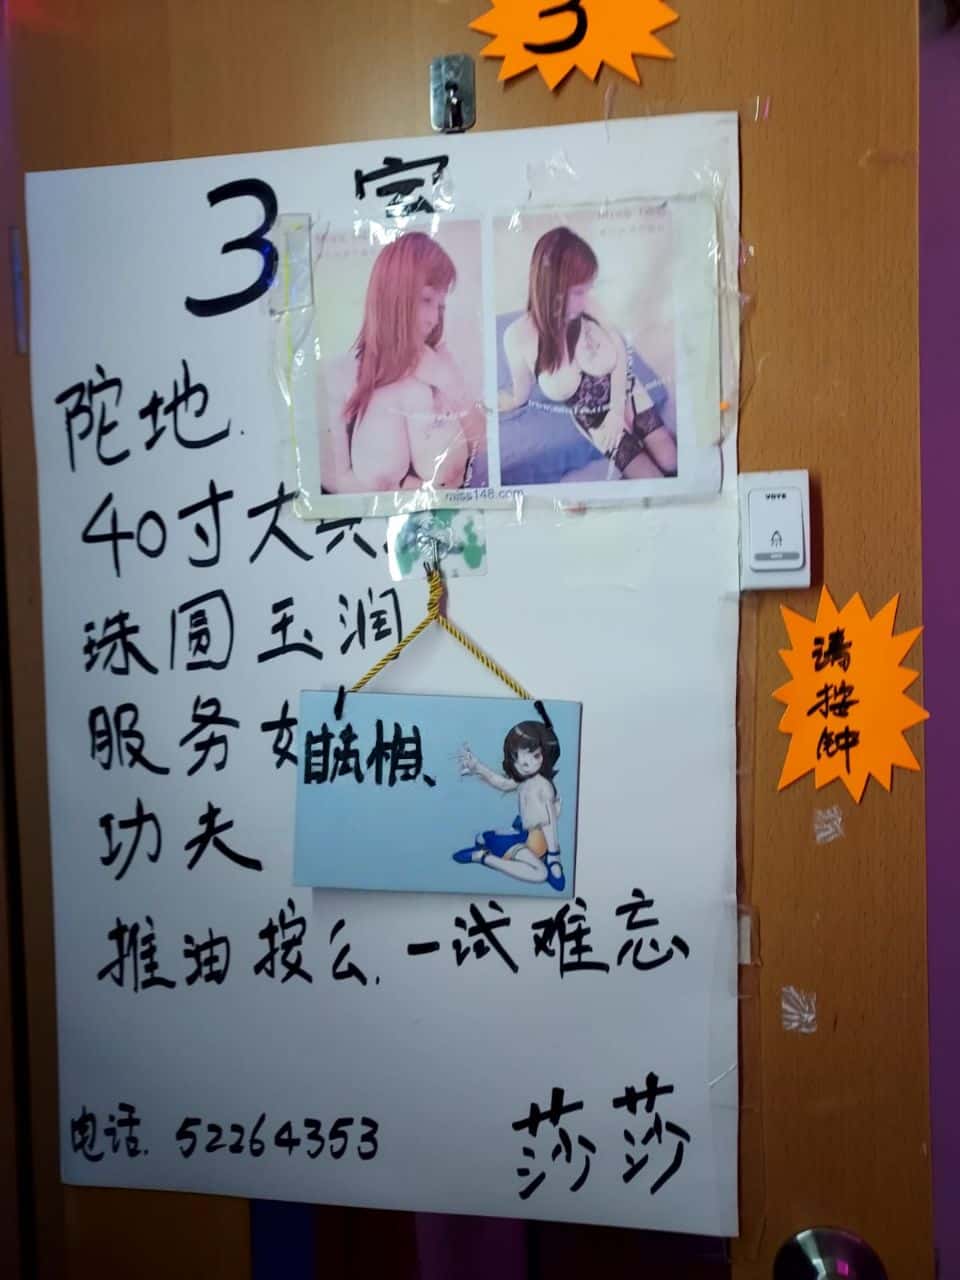 3
3
miss148.com
陀地.
40寸大
珠圆玉润
服务
功夫
推油按么.一试难忘
电话. 52264353
莎莎
请
按
钟